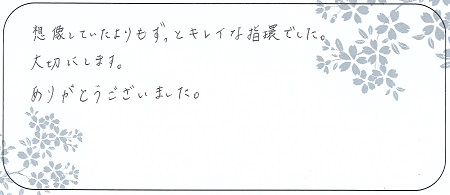 想像していたよりもずっとキレイな指環でした。
大切にします。
ありがとうございました。